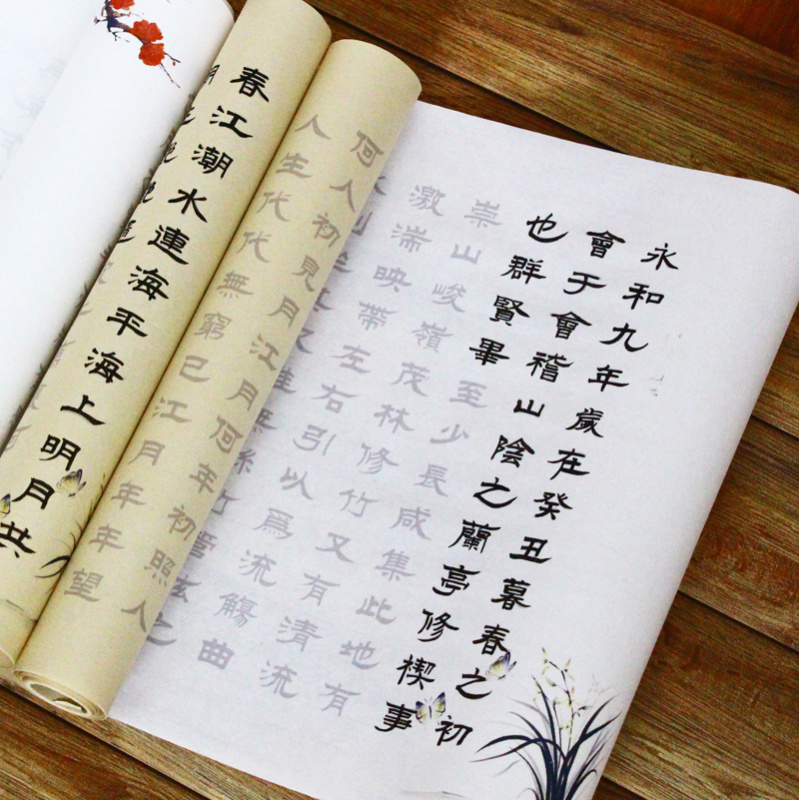 永和九年歲在癸丑暮春之初
會于會稽山陰之蘭亭修禊事
也群賢畢至少長咸集此地有
崇山峻嶺茂林修竹又有清流
激湍映帶左右引以爲流觴曲
何人初見月江月何年初照人
人生代代無窮已江月年年望
春江潮水連海平海上明月共